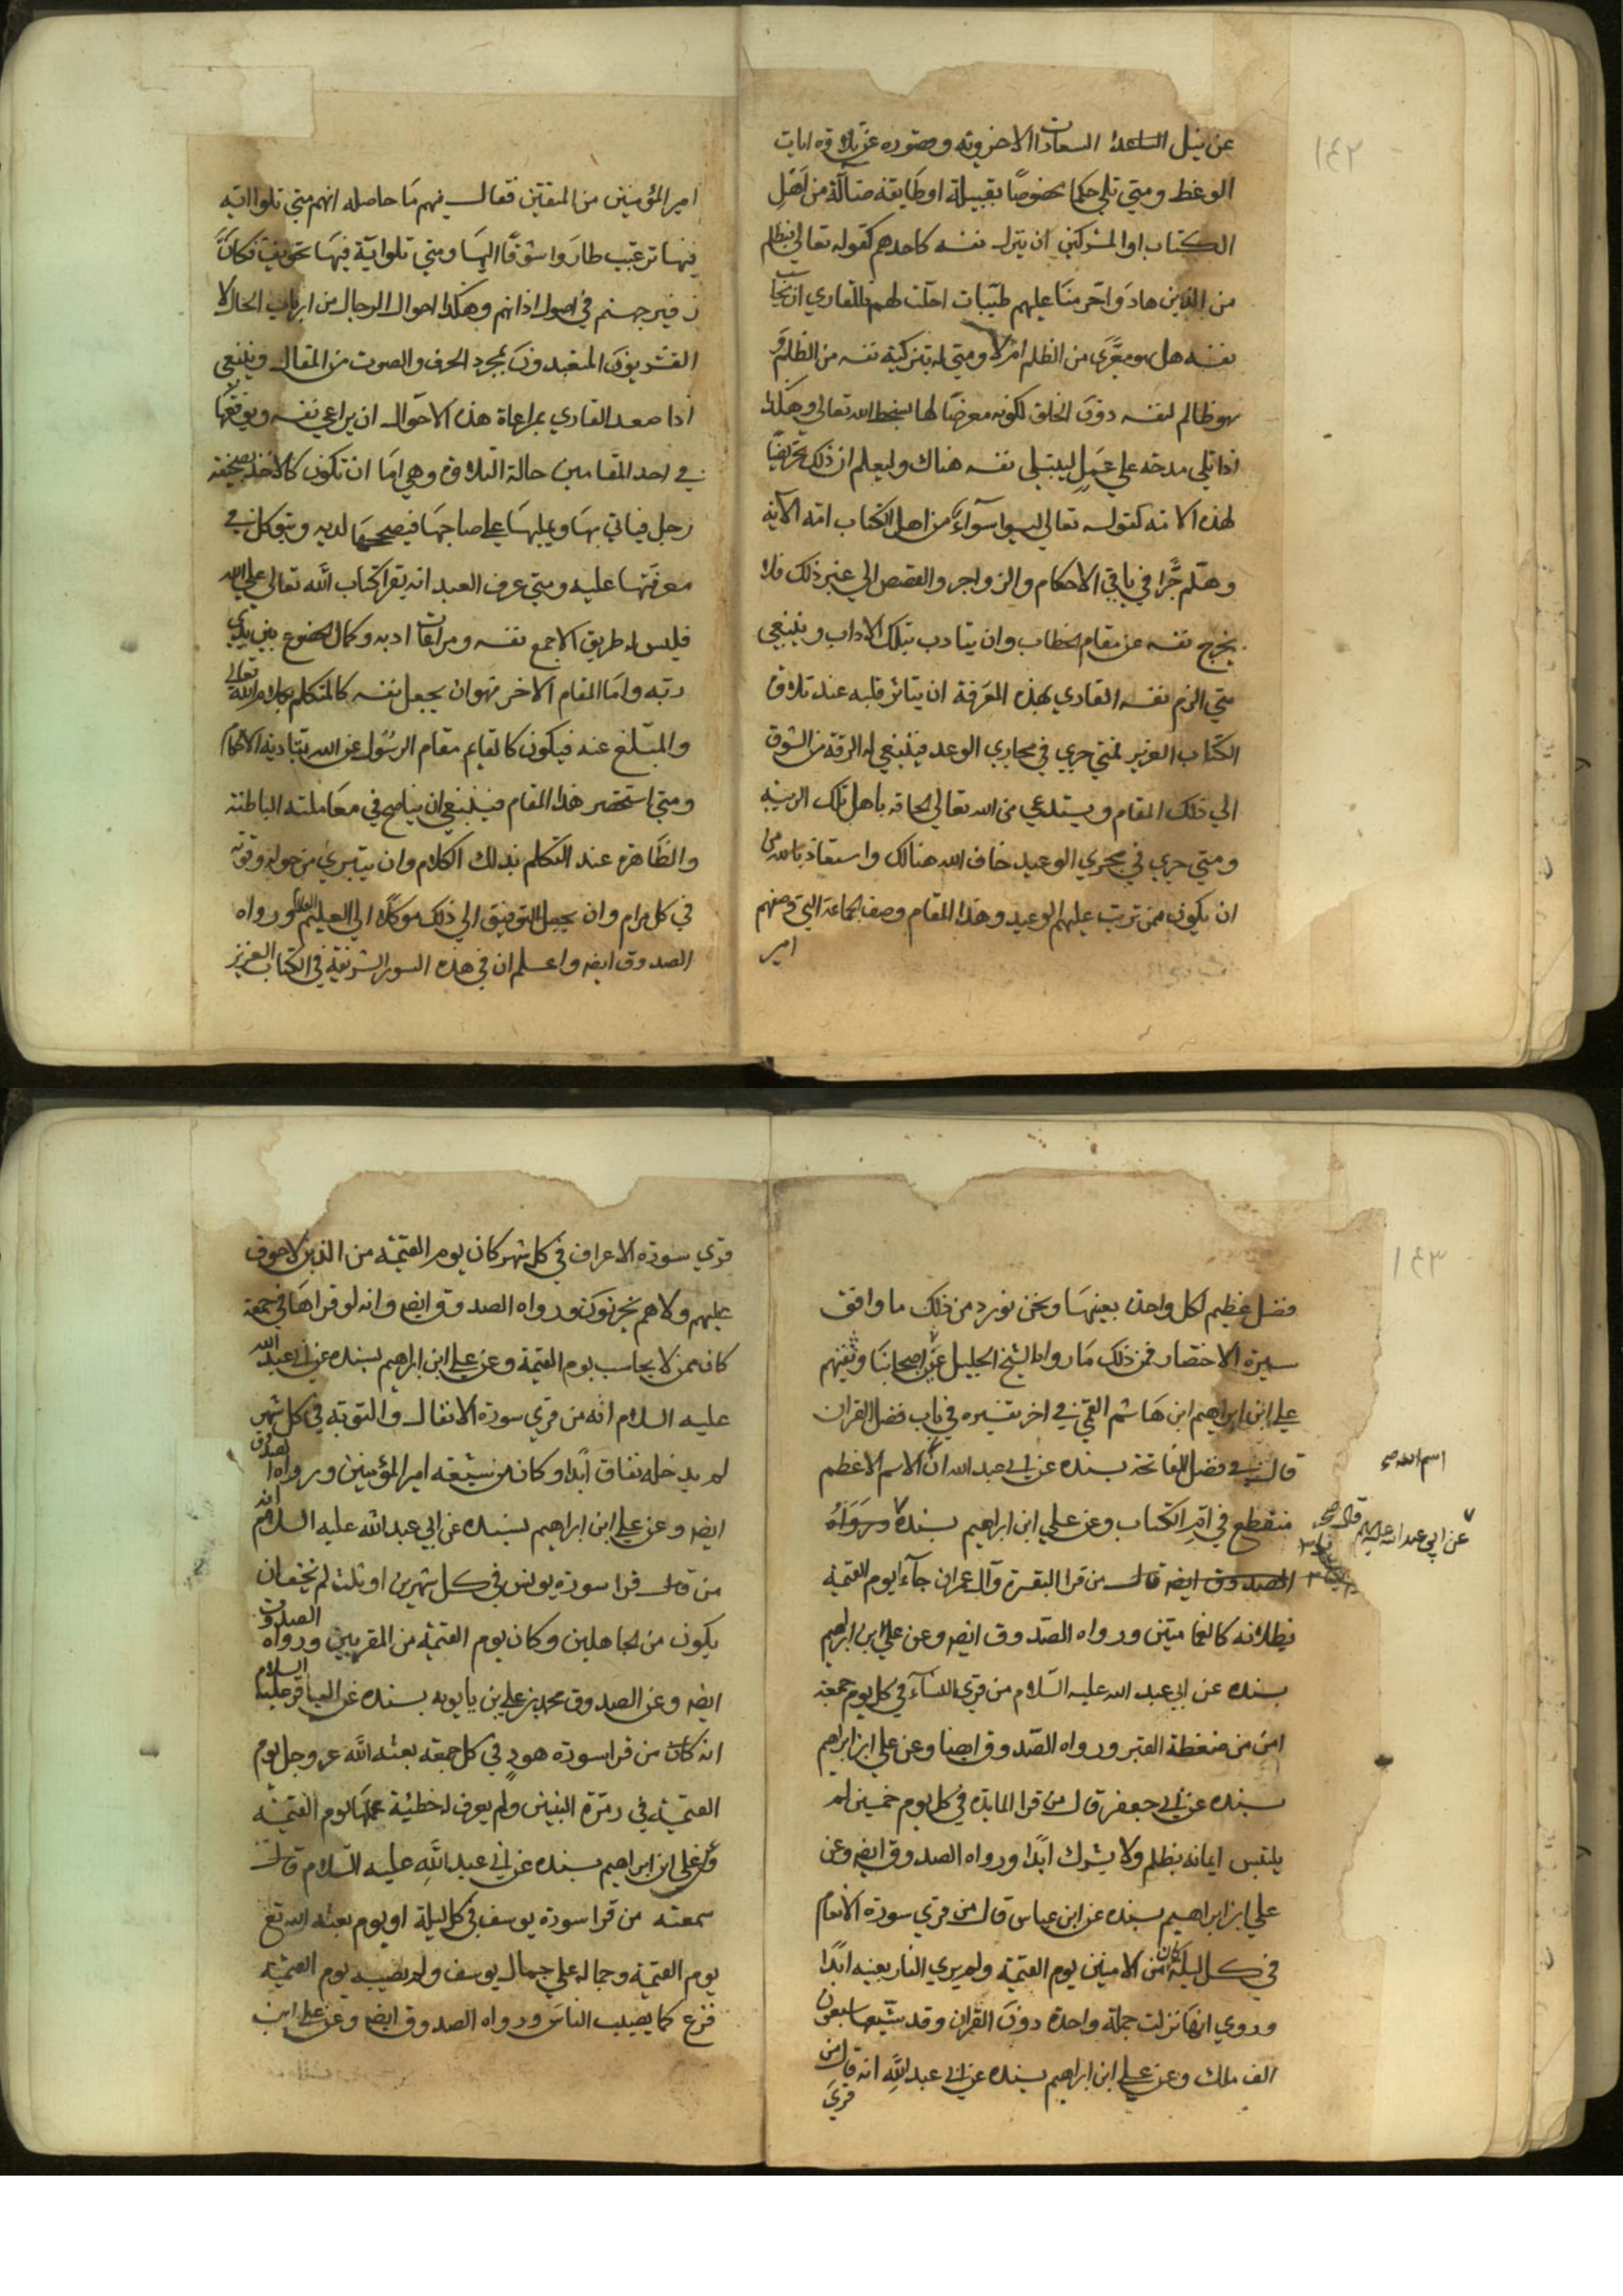 ١٤٢
عن نيل الساعدة السعادات الاخروية وصدوره عن تلاوة ايات
الوعظ ومتي تلي حكما مخصوصًا بقبيلة او طايفة ضالّة من اهل
الكتاب او المشركين ان ينزل نفسه كاحدهم كقوله تعالي فبظلم
من الذين هادوا حرمنا عليهم طيبات احلت لهم فللقاري ان
نفسه هل هو معرّي من الظلم ام لا ومتي له بتزكية نفسه من الظلم و
هو ظالم لنفسه دون الخلق لكونه معرضًا لها لسخط الله تعالي وهكذا
اذا تلي مدحه علي عمل ليبتلي نفسه هناك وليعلم ان ذلك تحريضًا
لهذه الامة كقوله تعالي ليسوا سوآءً من اهل الكتاب امة الآية
وهلم جرّا في باقي الاحكام والزواجر والقصص الي غير ذلك فلا
يخرج نفسه عن مقام الخطاب وان يتادب بتلك الاداب وينبغي
متي الزم نفسه القاري بهذه المعرفة ان يتاثر قلبه عند تلاوة
الكتاب العزيز فمتي جري في مجاري الوعد فينبغي له الرقة من الشوق
الي ذلك المقام ويستدعي من الله تعالي الحاقه باهل تلك المرتبة
ومتي جري في مجري الوعيد خاف الله هنالك واستعاذ بالله من
ان يكون ممن ترتب عليهم الوعيد وهذا المقام وصف الجماعة التي وصفهم
امير
امير المؤمنين من المتقين فقال فيهم ما حاصله انهم متي تلوا اية
فيها ترغيب طاروا شوقًا اليها ومتي تلوا اية فيها تخويف فكأنّ
زفير جهنم في اصول اذانهم وهكذا احوال الرجال من ارباب الحال لا
القشريون المتعبدون بمجرد الحرف والصوت من المقال وينبغي
اذا صعد القاري بمراعاة هذه الاحوال ان يراعي نفسه ويوقفها
في احد المقامين حالة التلاوة وهي اما ان تكون كالاخذ بصحيفة
رجل فياتي بها ويمليها علي صاحبها فيصححها لديه ويتوكل في
معرفتها عليه ومتي عرف العبد انه يقرا كتاب الله تعالي علي الله
فليس له طريق الا جمع نفسه ومراعات ادبه وكمال الخضوع بين يدي
ربه واما المقام الاخر فهو ان يجعل نفسه كالمتكلم بكلام الله تعالي
والمبلغ عنه فيكون كالقايم مقام الرسول عن الله بتادية الاحكام
ومتي استحضر هذا المقام فينبغي ان يناصح في معاملته الباطنة
والظاهرة عند التكلم بذلك الكلام وان يتبري من حوله وقوته
في كل مرام وان يجعل التوفيق الي ذلك موكلًا الي العليم العلام ورواه
الصدوق ايضا واعلم ان في هذه السور الشريفة في الكتاب العزيز
١٤٣
فضل عظيم لكل واحدة بعينها ونحن نورد من ذلك ما وافق
سيرة الاختصار فمن ذلك ما رواه الشيخ الجليل عن اصحابنا وثقتهم
علي ابن ابراهيم ابن هاشم القمي في اخر تفسيره في باب فضل القران
قال في فضل الفاتحة بسنده عن ابي عبد الله ان الاسم الاعظم
اسم الله صح
منقطع في ام الكتاب وعن علي ابن ابراهيم بسنده ورواه
عن ابي عبد الله عليه قال صح
الصدوق ايضه قال من قرا البقرة وآل عمران جآء يوم القيمة
يظلانه كالغمامتين ورواه الصدوق ايضه وعن علي ابن ابراهيم
بسنده عن ابي عبد الله عليه السلام من قري النسآء في كل يوم جمعة
امن من ضغطة القبر ورواه الصدوق ايضا وعن علي ابن ابراهيم
بسنده عن ابي جعفر قال من قرا المايدة في كل يوم خميس لم
يلتبس ايمانه بظلم ولا يشرك ابدًا ورواه الصدوق ايضه وعن
علي ابن ابراهيم بسنده عن ابن عباس قال من قري سورة الانعام
في كل ليلة كان من الامنين يوم القيمة ولم يري النار بعينه ابدًا
وروي انها نزلت جملة واحدة دون القران وقد شيّعها سبعون
الف ملك وعن علي ابن ابراهيم بسنده عن ابي عبد الله انه قال من
قري
قري سورة الاعراف في كل شهر كان يوم القيمة من الذين لا خوف
عليهم ولا هم يحزنون ورواه الصدوق ايضه وانه لو قراها في جمعة
كان ممن لا يحاسب يوم القيمة وعن علي ابن ابراهيم بسنده عن ابي عبد الله
عليه السلام انه من قري سورة الانفال والتوبة في كل شهر
لم يدخله نفاق ابدا وكان من شيعة امير المؤمنين ورواه الصدوق
ايضه وعن علي ابن ابراهيم بسنده عن ابي عبد الله عليه السلام انه
من قال قرا سورة يونس في كل شهرين او ثلث لم يخف ان
يكون من الجاهلين وكان يوم القيمة من المقربين ورواه الصدوق
ايضه وعن الصدوق محمد بن علي بن بابويه بسنده عن الباقر عليه السلام
انه كان من قرا سورة هودٍ في كل جمعة بعثه الله عز وجل يوم
القيمة في زمرة النبيين ولم يعرف له خطيئة عملها يوم القيمة
وعن علي ابن ابراهيم بسنده عن ابي عبد الله عليه السلام قال
سمعته من قرا سورة يوسف في كل ليلة او يوم بعثه الله تع
يوم القيمة وجماله علي جمال يوسف ولم يصيبه يوم القيمة
فزع كما يصيب الناس ورواه الصدوق ايضه وعن علي ابن